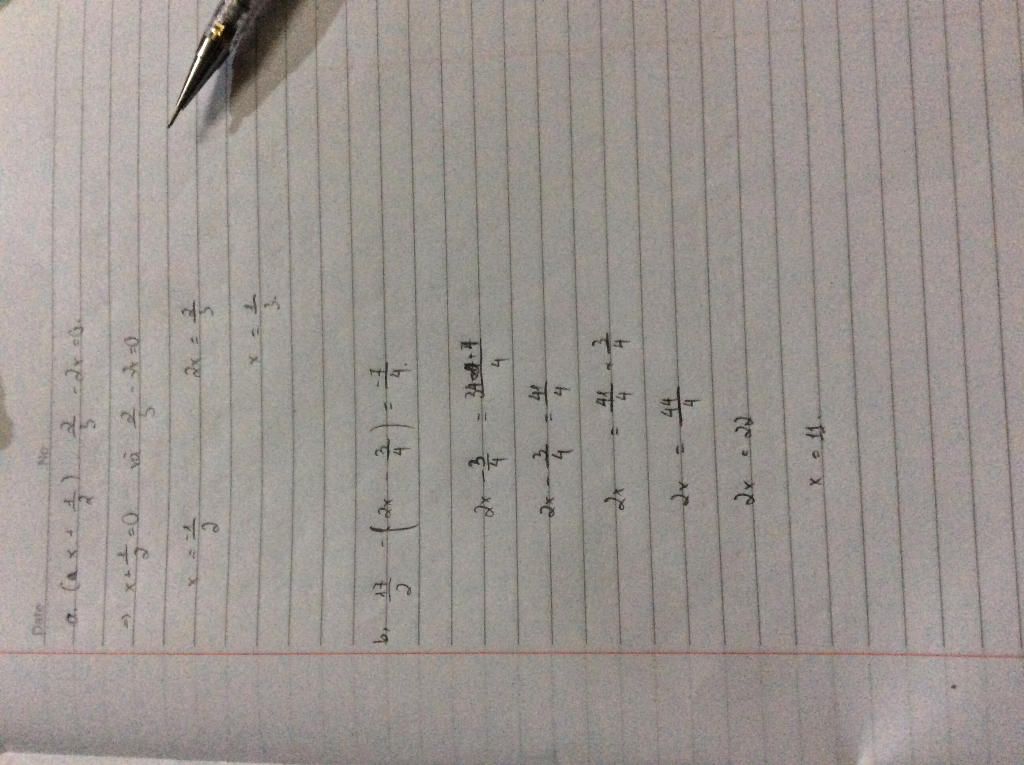 Date No.
a. (x + 1/2) 2/3 - 2x = 0.
⇒ x + 1/2 = 0 và 2/3 - 2x = 0
x = -1/2 2x = 2/3
x = 1/3.
b, 17/2 - (2x - 3/4) = -7/4.
2x - 3/4 = 34+7/4
2x - 3/4 = 41/4
2x = 41/4 + 3/4
2x = 44/4
2x = 22
x = 11.